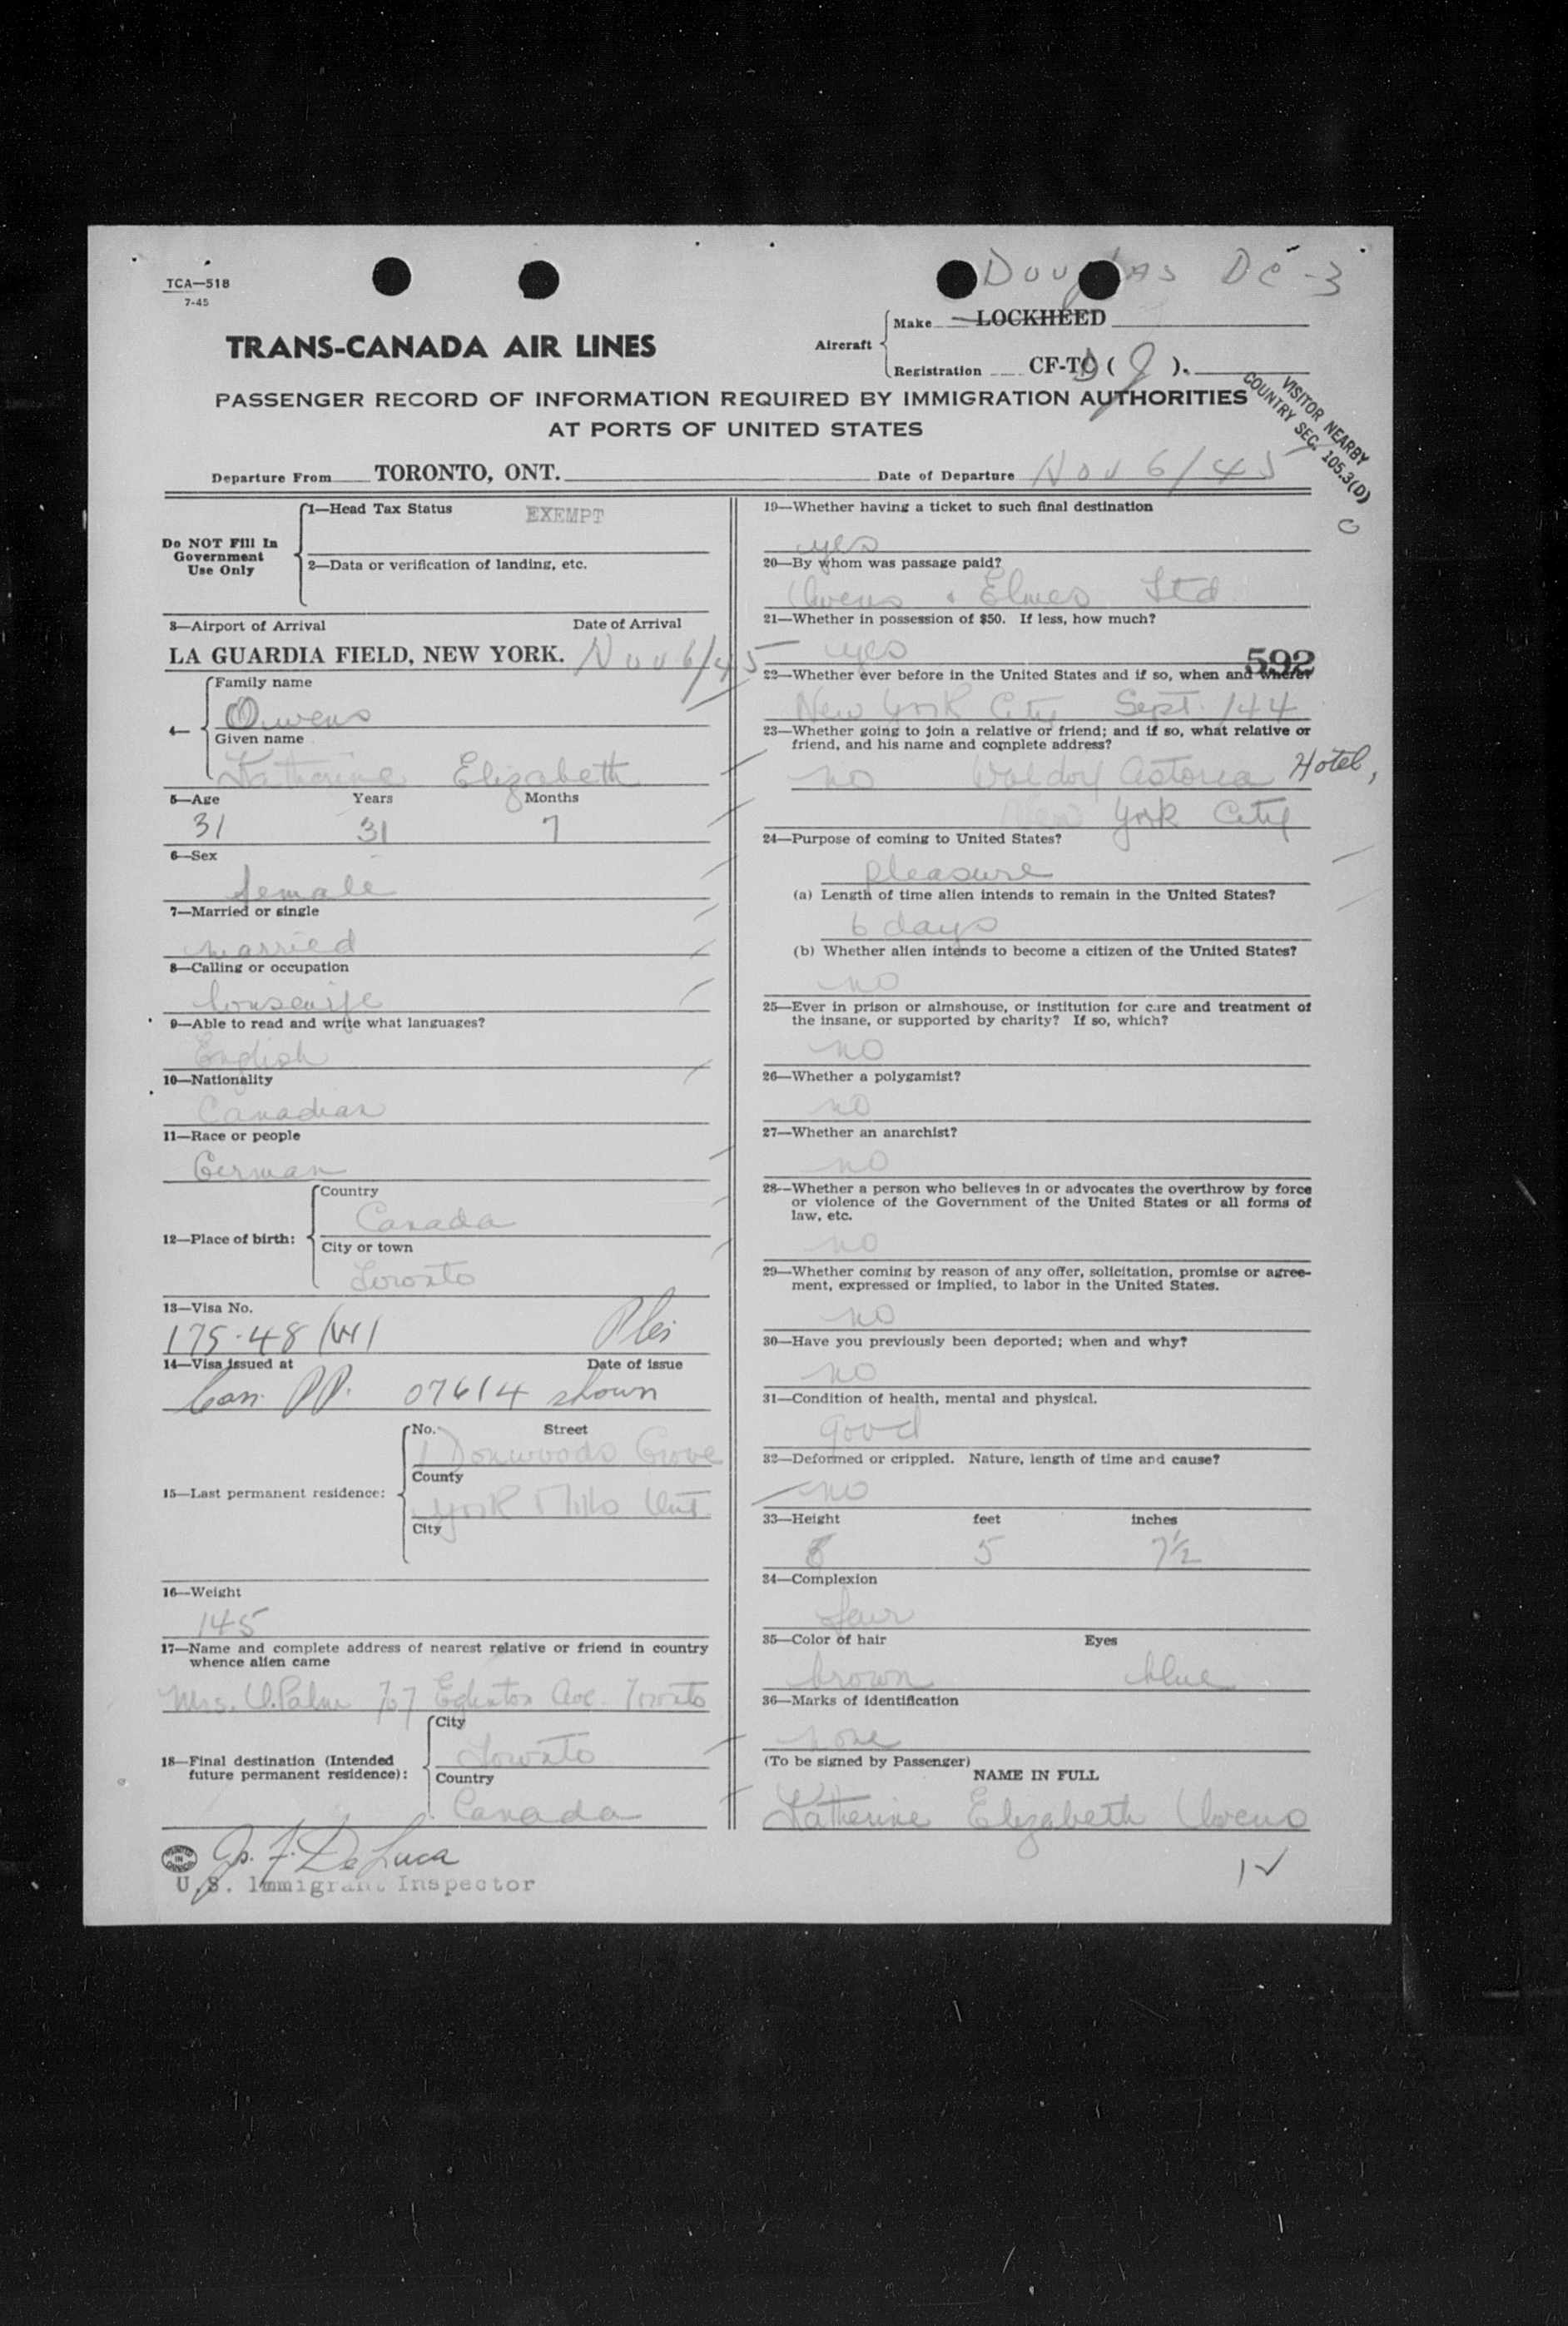 TCA—518
7-45
DOUGLAS DC-3
TRANS-CANADA AIR LINES
Aircraft
Make LOCKHEED
Registration CF-TC ( J ).
PASSENGER RECORD OF INFORMATION REQUIRED BY IMMIGRATION AUTHORITIES
AT PORTS OF UNITED STATES
VISITOR NEARBY
COUNTRY SEC. 105.3(D)
Departure From TORONTO, ONT.
Date of Departure Nov 6/45
Do NOT Fill In
Government
Use Only
1—Head Tax Status EXEMPT
2—Data or verification of landing, etc.
3—Airport of Arrival Date of Arrival
LA GUARDIA FIELD, NEW YORK. Nov 6/45
4—
Family name
Owens
Given name
Katherine Elizabeth
5—Age Years Months
31 31 7
6—Sex
female
7—Married or single
married
8—Calling or occupation
housewife
9—Able to read and write what languages?
English
10—Nationality
Canadian
11—Race or people
German
12—Place of birth:
Country
Canada
City or town
Toronto
13—Visa No.
175-48
14—Visa issued at Date of issue
Can. PP. 07614 shown
15—Last permanent residence:
No. Street
Donwoods Grove
County
York Mills Ont.
City
16—Weight
145
17—Name and complete address of nearest relative or friend in country
whence alien came
Mrs. Eglinton Ave. Toronto
18—Final destination (Intended
future permanent residence):
City
Toronto
Country
Canada
De Luca
U.S. Immigrant Inspector
PRINTED IN CANADA
19—Whether having a ticket to such final destination
yes
20—By whom was passage paid?
Owens & Elmes Ltd
21—Whether in possession of $50. If less, how much?
yes
592
22—Whether ever before in the United States and if so, when and where?
New York City Sept. /44
23—Whether going to join a relative or friend; and if so, what relative or
friend, and his name and complete address?
no Waldorf Astoria Hotel,
New York City
24—Purpose of coming to United States?
pleasure
(a) Length of time alien intends to remain in the United States?
6 days
(b) Whether alien intends to become a citizen of the United States?
no
25—Ever in prison or almshouse, or institution for care and treatment of
the insane, or supported by charity? If so, which?
no
26—Whether a polygamist?
no
27—Whether an anarchist?
no
28—Whether a person who believes in or advocates the overthrow by force
or violence of the Government of the United States or all forms of
law, etc.
no
29—Whether coming by reason of any offer, solicitation, promise or agree-
ment, expressed or implied, to labor in the United States.
no
30—Have you previously been deported; when and why?
no
31—Condition of health, mental and physical.
good
32—Deformed or crippled. Nature, length of time and cause?
no
33—Height feet inches
5 7½
34—Complexion
fair
35—Color of hair Eyes
brown blue
36—Marks of identification
none
(To be signed by Passenger)
NAME IN FULL
Katherine Elizabeth Owens